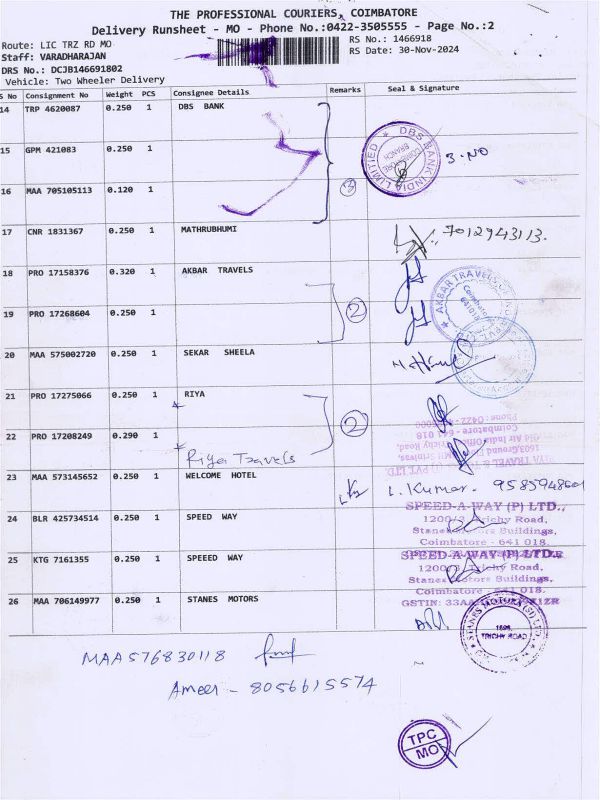 THE PROFESSIONAL COURIERS, COIMBATORE
Delivery Runsheet - MO - Phone No.:0422-3505555 - Page No.:2
Route: LIC TRZ RD MO RS No.: 1466918
Staff: VARADHARAJAN RS Date: 30-Nov-2024
DRS No.: DCJB146691802
Vehicle: Two Wheeler Delivery
S No Consignment No Weight PCS Consignee Details Remarks Seal & Signature
14 TRP 4620087 0.250 1 DBS BANK
15 GPM 421083 0.250 1
DBS BANK INDIA LIMITED
COIMBATORE BRANCH
3. NO
16 MAA 705105113 0.120 1 3
17 CNR 1831367 0.250 1 MATHRUBHUMI 7012943113.
18 PRO 17158376 0.320 1 AKBAR TRAVELS
AKBAR TRAVELS OF
Coimbatore
641018
19 PRO 17268604 0.250 1 2
20 MAA 575002720 0.250 1 SEKAR SHEELA
21 PRO 17275066 0.250 1 RIYA
22 PRO 17208249 0.290 1 2
Riya Travels
Phone : 0422 -
Coimbatore - 641 018
Old Air India Office, Trichy Road,
1603,Ground
TRAVEL & (I) PVT LTD
23 MAA 573145652 0.250 1 WELCOME HOTEL L. Kumar. 9585948601
24 BLR 425734514 0.250 1 SPEED WAY
SPEED-A-WAY (P) LTD.,
1200/3 Trichy Road,
Stanes Motors Buildings,
Coimbatore - 641 018.
25 KTG 7161355 0.250 1 SPEEED WAY
SPEED-A-WAY (P) LTD.,
1200/3 Trichy Road,
Stanes Motors Buildings,
Coimbatore - 641 018.
26 MAA 706149977 0.250 1 STANES MOTORS
STANES MOTORS
TRICHY ROAD
MAA 576830118
Ameer - 8056615574
TPC
MO